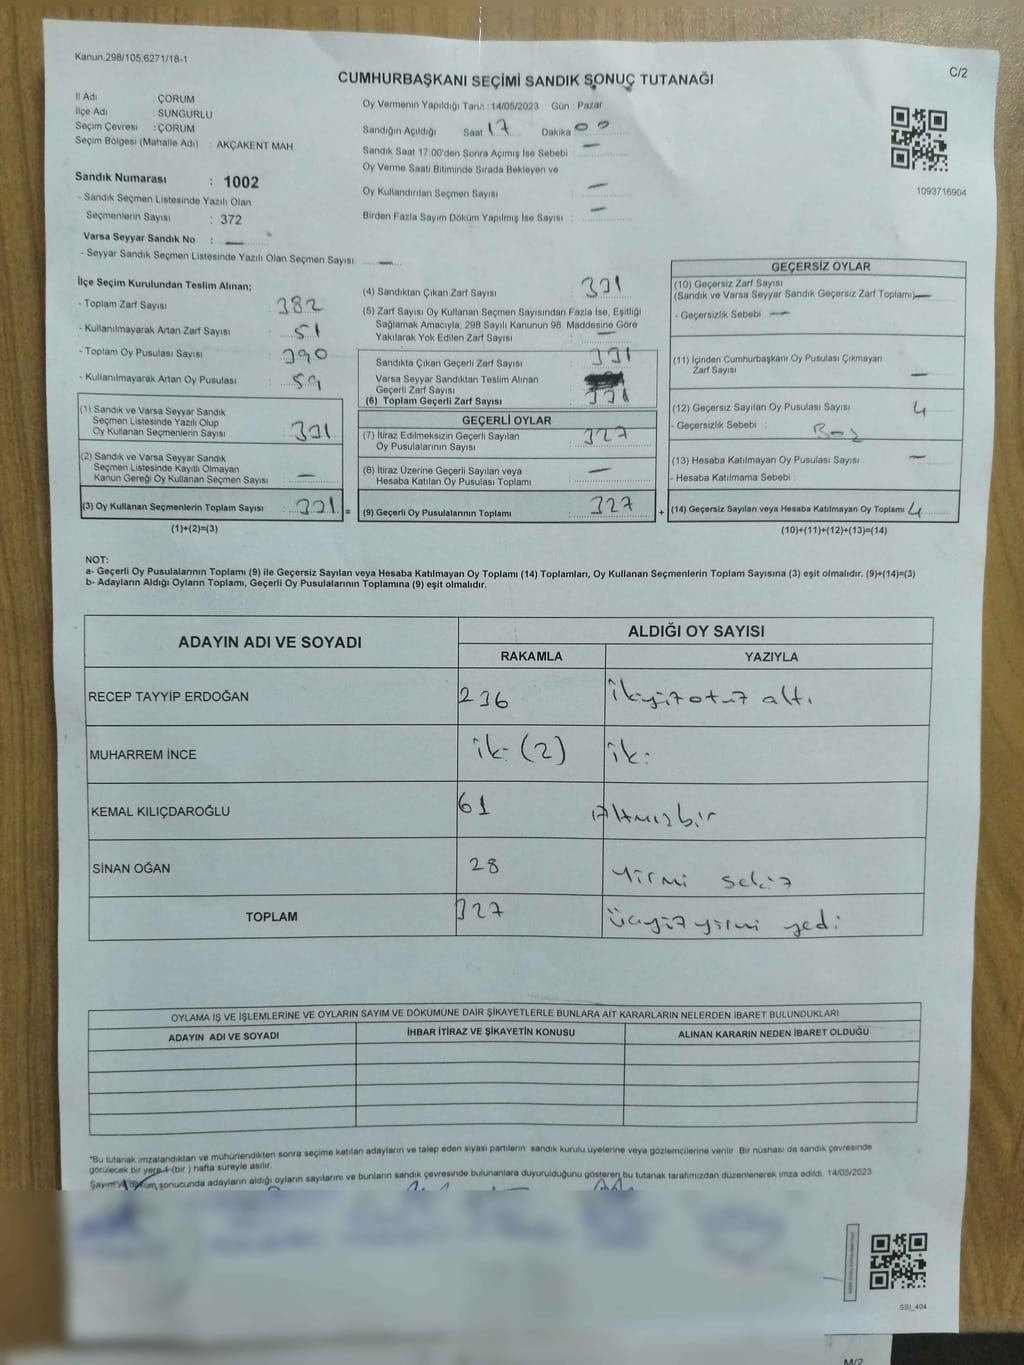 Kanun,298/105,6271/18-1
C/2
CUMHURBAŞKANI SEÇİMİ SANDIK SONUÇ TUTANAĞI
İl Adı : ÇORUM
İlçe Adı : SUNGURLU
Seçim Çevresi : ÇORUM
Seçim Bölgesi (Mahalle Adı) : AKÇAKENT MAH.
Sandık Numarası : 1002
- Sandık Seçmen Listesinde Yazılı Olan
Seçmenlerin Sayısı : 372
Varsa Seyyar Sandık No : —
- Seyyar Sandık Seçmen Listesinde Yazılı Olan Seçmen Sayısı : —
Oy Vermenin Yapıldığı Tarih : 14/05/2023 Gün : Pazar
Sandığın Açıldığı Saat 17 Dakika 00
Sandık Saat 17:00'den Sonra Açımış İse Sebebi : —
Oy Verme Saati Bitiminde Sırada Bekleyen ve
Oy Kullandırılan Seçmen Sayısı : —
Birden Fazla Sayım Döküm Yapılmış İse Sayısı : —
1093716904
İlçe Seçim Kurulundan Teslim Alınan;
- Toplam Zarf Sayısı : 382
- Kullanılmayarak Artan Zarf Sayısı : 51
- Toplam Oy Pusulası Sayısı : 390
- Kullanılmayarak Artan Oy Pusulası : 59
(1) Sandık ve Varsa Seyyar Sandık
Seçmen Listesinde Yazılı Olup
Oy Kullanan Seçmenlerin Sayısı : 331
(2) Sandık ve Varsa Seyyar Sandık
Seçmen Listesinde Kayıtlı Olmayan
Kanun Gereği Oy Kullanan Seçmen Sayısı : —
(3) Oy Kullanan Seçmenlerin Toplam Sayısı : 331 =
(1)+(2)=(3)
(4) Sandıktan Çıkan Zarf Sayısı : 331
(5) Zarf Sayısı Oy Kullanan Seçmen Sayısından Fazla İse, Eşitliği
Sağlamak Amacıyla, 298 Sayılı Kanunun 98. Maddesine Göre
Yakılarak Yok Edilen Zarf Sayısı : —
Sandıkta Çıkan Geçerli Zarf Sayısı : 331
Varsa Seyyar Sandıktan Teslim Alınan
Geçerli Zarf Sayısı
(6) Toplam Geçerli Zarf Sayısı : 331
GEÇERLİ OYLAR
(7) İtiraz Edilmeksizin Geçerli Sayılan
Oy Pusulalarının Sayısı : 327
(8) İtiraz Üzerine Geçerli Sayılan veya
Hesaba Katılan Oy Pusulası Toplamı : —
(9) Geçerli Oy Pusulalarının Toplamı : 327 +
GEÇERSİZ OYLAR
(10) Geçersiz Zarf Sayısı
(Sandık ve Varsa Seyyar Sandık Geçersiz Zarf Toplamı) —
- Geçersizlik Sebebi : —
(11) İçinden Cumhurbaşkanı Oy Pusulası Çıkmayan
Zarf Sayısı —
(12) Geçersiz Sayılan Oy Pusulası Sayısı : 4
- Geçersizlik Sebebi :
(13) Hesaba Katılmayan Oy Pusulası Sayısı : —
- Hesaba Katılmama Sebebi :
(14) Geçersiz Sayılan veya Hesaba Katılmayan Oy Toplamı 4
(10)+(11)+(12)+(13)=(14)
NOT:
a- Geçerli Oy Pusulalarının Toplamı (9) ile Geçersiz Sayılan veya Hesaba Katılmayan Oy Toplamı (14) Toplamları, Oy Kullanan Seçmenlerin Toplam Sayısına (3) eşit olmalıdır. (9)+(14)=(3)
b- Adayların Aldığı Oyların Toplamı, Geçerli Oy Pusulalarının Toplamına (9) eşit olmalıdır.
ADAYIN ADI VE SOYADI ALDIĞI OY SAYISI
RAKAMLA YAZIYLA
RECEP TAYYİP ERDOĞAN 236 ikiyüzotuz altı
MUHARREM İNCE iki (2) iki
KEMAL KILIÇDAROĞLU 61 Altmışbir
SİNAN OĞAN 28 Yirmi sekiz
TOPLAM 327 üçyüzyirmi yedi
OYLAMA İŞ VE İŞLEMLERİNE VE OYLARIN SAYIM VE DÖKÜMÜNE DAİR ŞİKAYETLERLE BUNLARA AİT KARARLARIN NELERDEN İBARET BULUNDUKLARI
ADAYIN ADI VE SOYADI İHBAR İTİRAZ VE ŞİKAYETİN KONUSU ALINAN KARARIN NEDEN İBARET OLDUĞU
*Bu tutanak imzalandıktan ve mühürlendikten sonra seçime katılan adayların ve talep eden siyasi partilerin sandık kurulu üyelerine veya gözlemcilerine verilir. Bir nüshası da sandık çevresinde
görülecek bir yere 1 (bir ) hafta süreyle asılır.
Sayım ve döküm sonucunda adayların aldığı oyların sayılarını ve bunların sandık çevresinde bulunanlara duyurulduğunu gösteren bu tutanak tarafımızdan düzenlenerek imza edildi. 14/05/2023
SSI_404
M/2